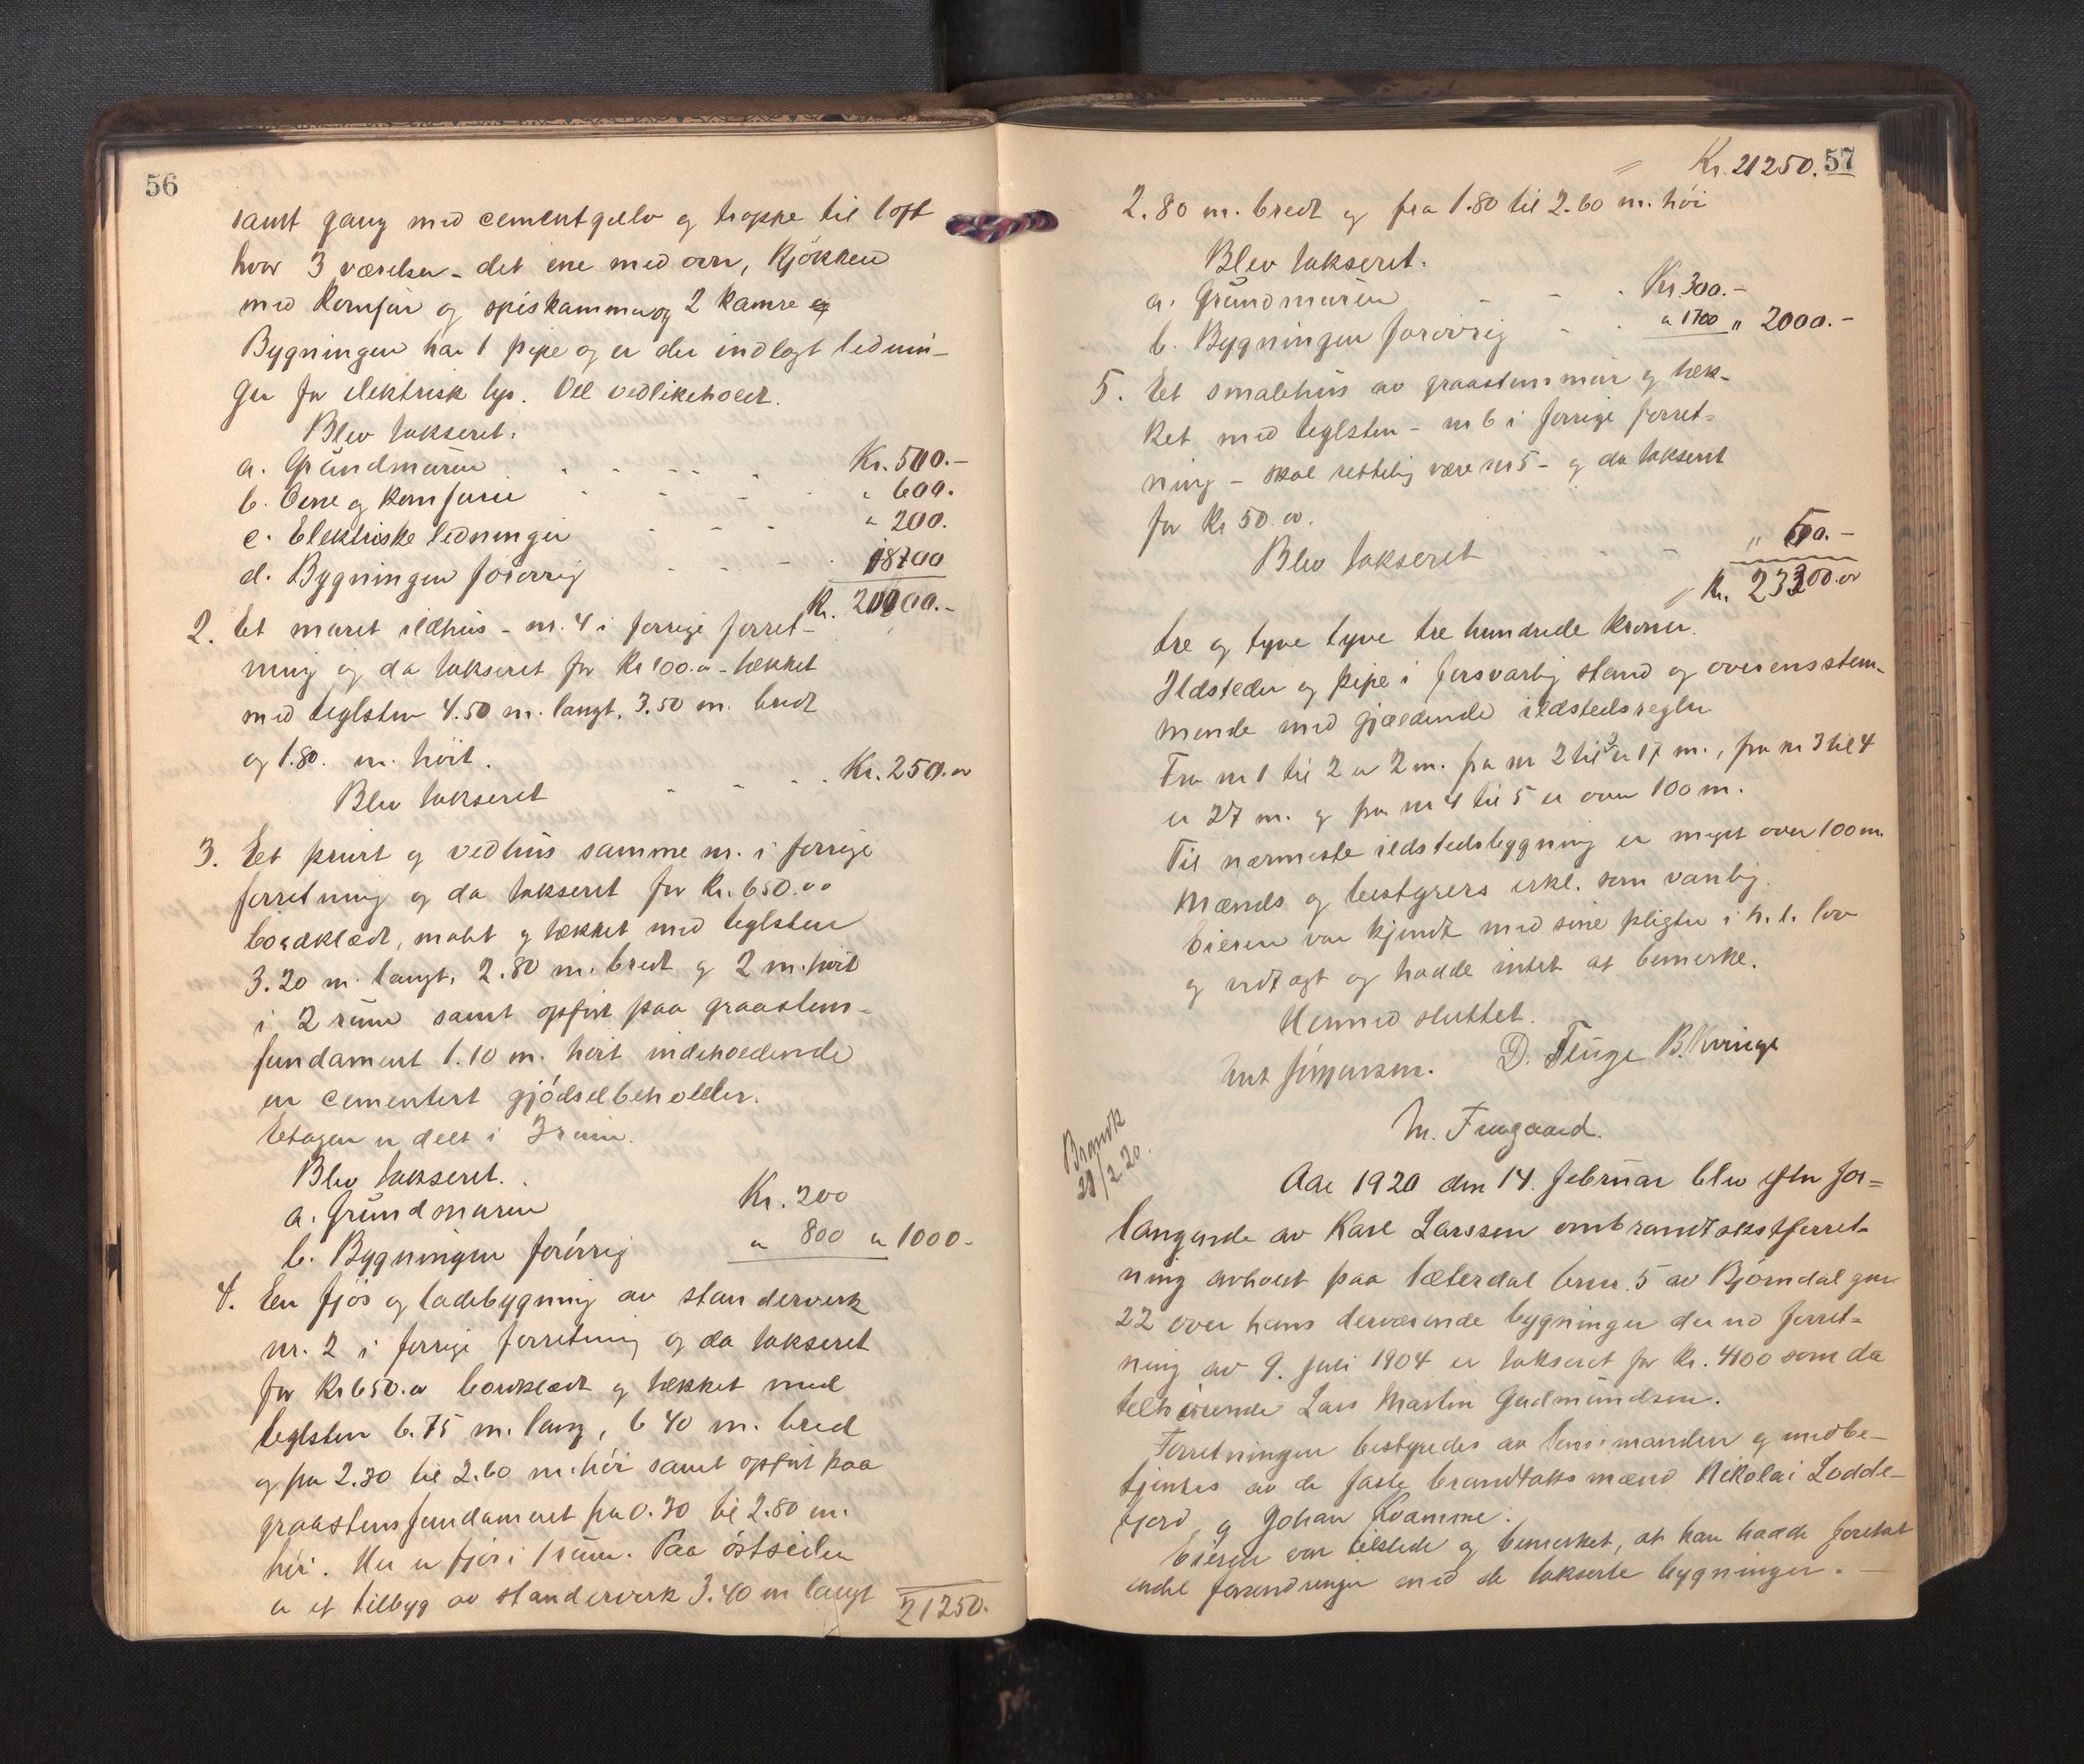 56
samt gang med cementgulv og trappe til loft
hvor 3 værelser - det ene med ovn, Kjøkken
med Komfur og spiskammer og 2 kamre
Bygningen har 1 pipe og er der indlagt lednin-
ger for elektrisk lys. Vel vedlikeholdt.
Blev takseret.
a. Grundmuren Kr. 500.-
b. Ovne og komfurer " 600.
c. Elektriske ledninger " 200.
d. Bygningen forøvrig 18700
Kr. 20000.-
2. Et muret ildhus - nr. 4 i forrige forret-
ning og da takseret for Kr 100.00 - tækket
med teglsten 4.50 m. langt, 3.50 m. bredt
og 1.80. m. høit.
Blev takseret Kr. 250.00
3. Et privet og vedhus samme nr. i forrige
forretning og da takseret for Kr. 650.00
bordklædt, malet og tækket med teglsten
3.20 m. langt, 2.80 m. bredt og 2 m. høit
i 2 rum samt opført paa graastens-
fundament 1.10 m. høit indeholdende
en cementert gjødselbeholder.
Etagen er delt i 3 rum.
Blev takseret.
a. Grundmuren Kr. 200
b. Bygningen forøvrig " 800 " 1000-
4. En fjøs og ladebygning av standerverk
nr. 2 i forrige forretning og da takseret
for Kr 650.00 bordklædt og tækket med
teglsten 6.75 m. lang, 6 40 m. bred
og fra 2.30 til 2.60 m. høi samt opført paa
graastensfundament fra 0.30 til 2.80 m.
høi. Her er fjøs i 1 rum. Paa østsiden
er et tilbyg av standerverk 3.40 m langt
21250.
Kr. 21250. 57
2.80 m. bredt og fra 1.80 til 2.60 m. høi
Blev takseret.
a. Grundmuren Kr 300.-
b. Bygningen forøvrig " 1700 " 2000.-
5. Et smalehus av graastensmur og tæk-
ket med teglsten - nr 6 i forrige forret-
ning - skal rettelig være nr 5 - og da takseret
for Kr 50.00.
Blev takseret " 50.-
Kr. 23300.00
tre og tyve tyve tre hundrede kroner.
Ildsteder og pipe i forsvarlig stand og overensstem-
mende med gjældende ildstedsregler.
Fra nr 1 til 2 er 2 m. fra nr 2 til 3 er 17 m., fra nr 3 til 4
er 27 m. og fra nr 4 til 5 er over 100 m.
Til nærmeste ildstedsbygning er meget over 100 m.
Mænds og bestyrers erkl. som vanlig.
Eieren var kjendt med sine pligter i h. t. lov
og vedtægt og hadde intet at bemerke.
Hermed sluttet.
D. Fluge B. Kvinge
M. Fragaard.
Brandk
21/2.20.
Aar 1920 den 14. februar blev efter for-
langende av Karl Larssen ombrandtakstforret-
ning avholdt paa Sæterdal brnr. 5 av Bjørndal gnr.
22 over hans derværende bygninger der ved forret-
ning av 9. juli 1904 er takseret for Kr. 4100 som da
tilhørende Lars Martin Gudmundsen.
Forretningen bestyredes av lensmanden og medbe-
tjentes av de faste brandtakstmænd Nikolai Lodde-
fjord og Johan Kvamme.
Eieren var tilstede og bemerket, at han hadde foretat
endel forandringer med de takserte bygninger. -